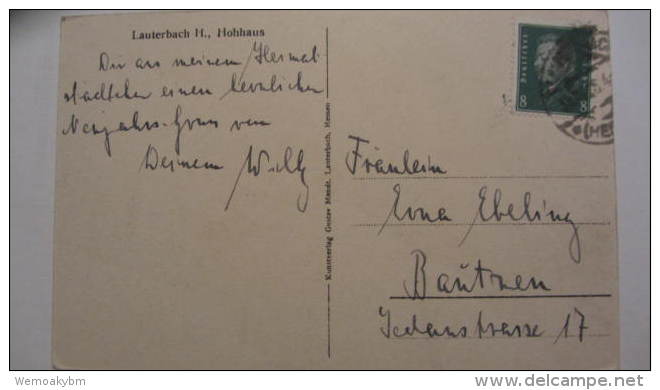 Lauterbach H., Hohhaus
Dir aus meinem Heimat
städtchen einen herzlichen
Neujahrs-Gruss von
Deinem Willy
Kunstverlag Gustav Mandt, Lauterbach, Hessen
Deutsches
8 8
Fräulein
Erna Ebeling
Bautzen
Sedanstrasse 17
Wemoakybm
http://www.delcampe.net